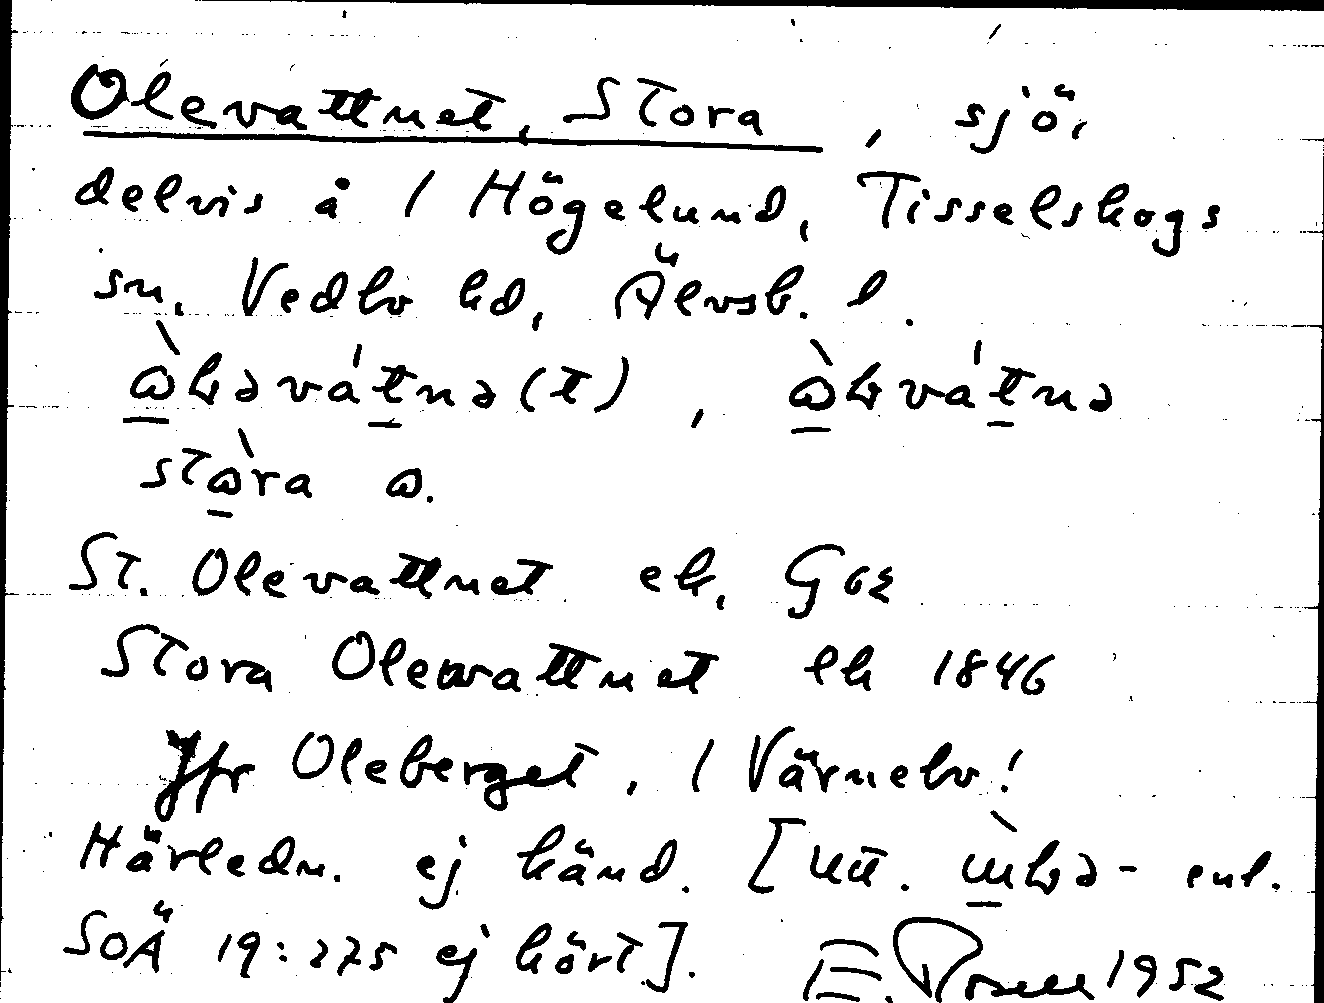 Olevattnet, Stora, sjö,
delvis å / Högelund, Tisselskogs
sn, Vedbo hd, Älvsb. l.
stòra
St. Olevattnet ek, G
Stora Olevattnet lk 1846
Jfr Oleberget, / Värnebo!
Härledn. ej känd. [Utt. enl.
SOÄ 19:275 ej hört]. E. Rosell 1952